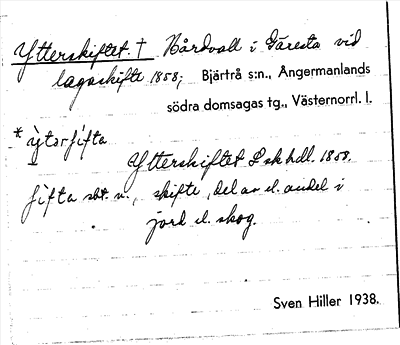 Ytterskiftet. † Hårdvall i Gåresta vid
lagaskifte 1858; Bjärtrå s:n., Angermanlands
södra domsagas tg., Västernorrl. l.
* ỳtərʃifta
Ytterskiftet Lskhdl. 1858.
ʃifta sbt. n., skifte, del av el. andel i
jord el. skog.
Sven Hiller 1938.